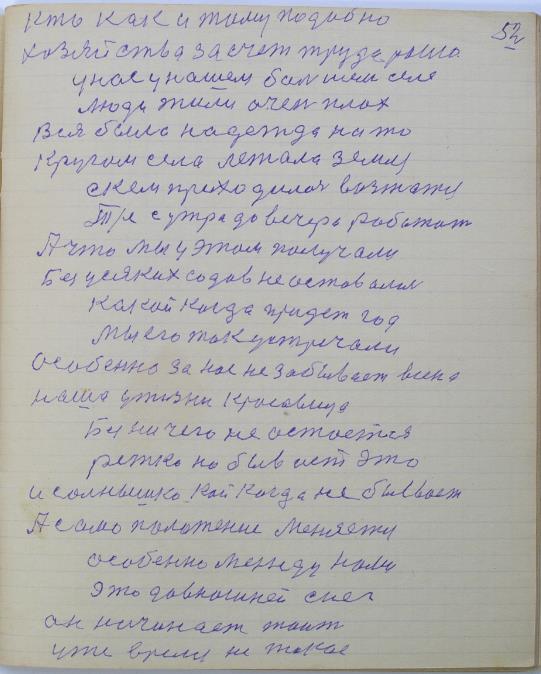 52
Кто как и тому подобно
хозяйства за счет труда
у нас у нашем большем селе
люди жили очен плох
Вся была надежда на то
Кругом села лежала земля
с кем приходилос
с утра до вечера работат
А что мы у этом получали
Без усяких садов не оставалис
какой когда придет год
мы его так устречали
особенно за нас не забывает весна
наша у жизни красавица
Без ничего не остается
редко но бывает это
и солнышко кой когда не бывает
А само положение меняется
особенно между нами
это давношней снег
он начинает таит
уже время не такое